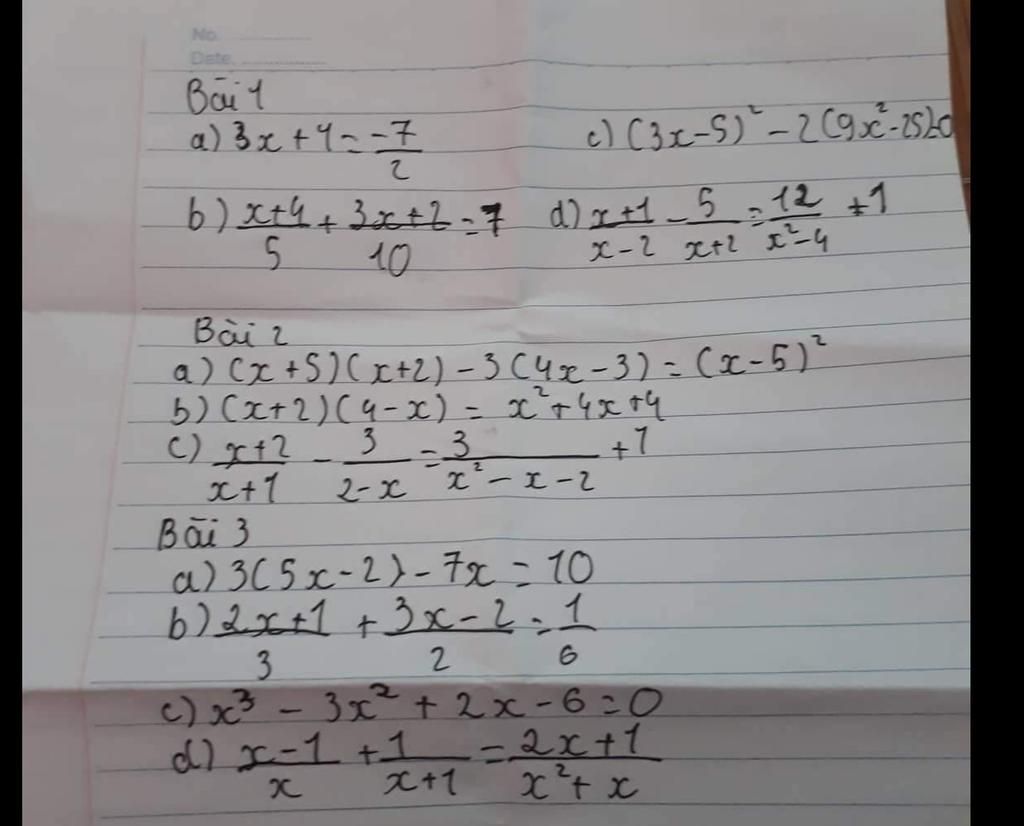 No.
Date.
Bài 1
a) 3x + 4 = -7/2 c) (3x-5)² - 2(9x²-25)=0
b) (x+4)/5 + (3x+2)/10 = 7 d) (x+1)/(x-2) - 5/(x+2) = 12/(x²-4) + 1
Bài 2
a) (x+5)(x+2) - 3(4x-3) = (x-5)²
b) (x+2)(4-x) = x²+4x+4
c) (x+2)/(x+1) - 3/(2-x) = 3/(x²-x-2) + 1
Bài 3
a) 3(5x-2) - 7x = 10
b) (2x+1)/3 + (3x-2)/2 = 1/6
c) x³ - 3x² + 2x - 6 = 0
d) (x-1)/x + 1/(x+1) = (2x+1)/(x²+x)